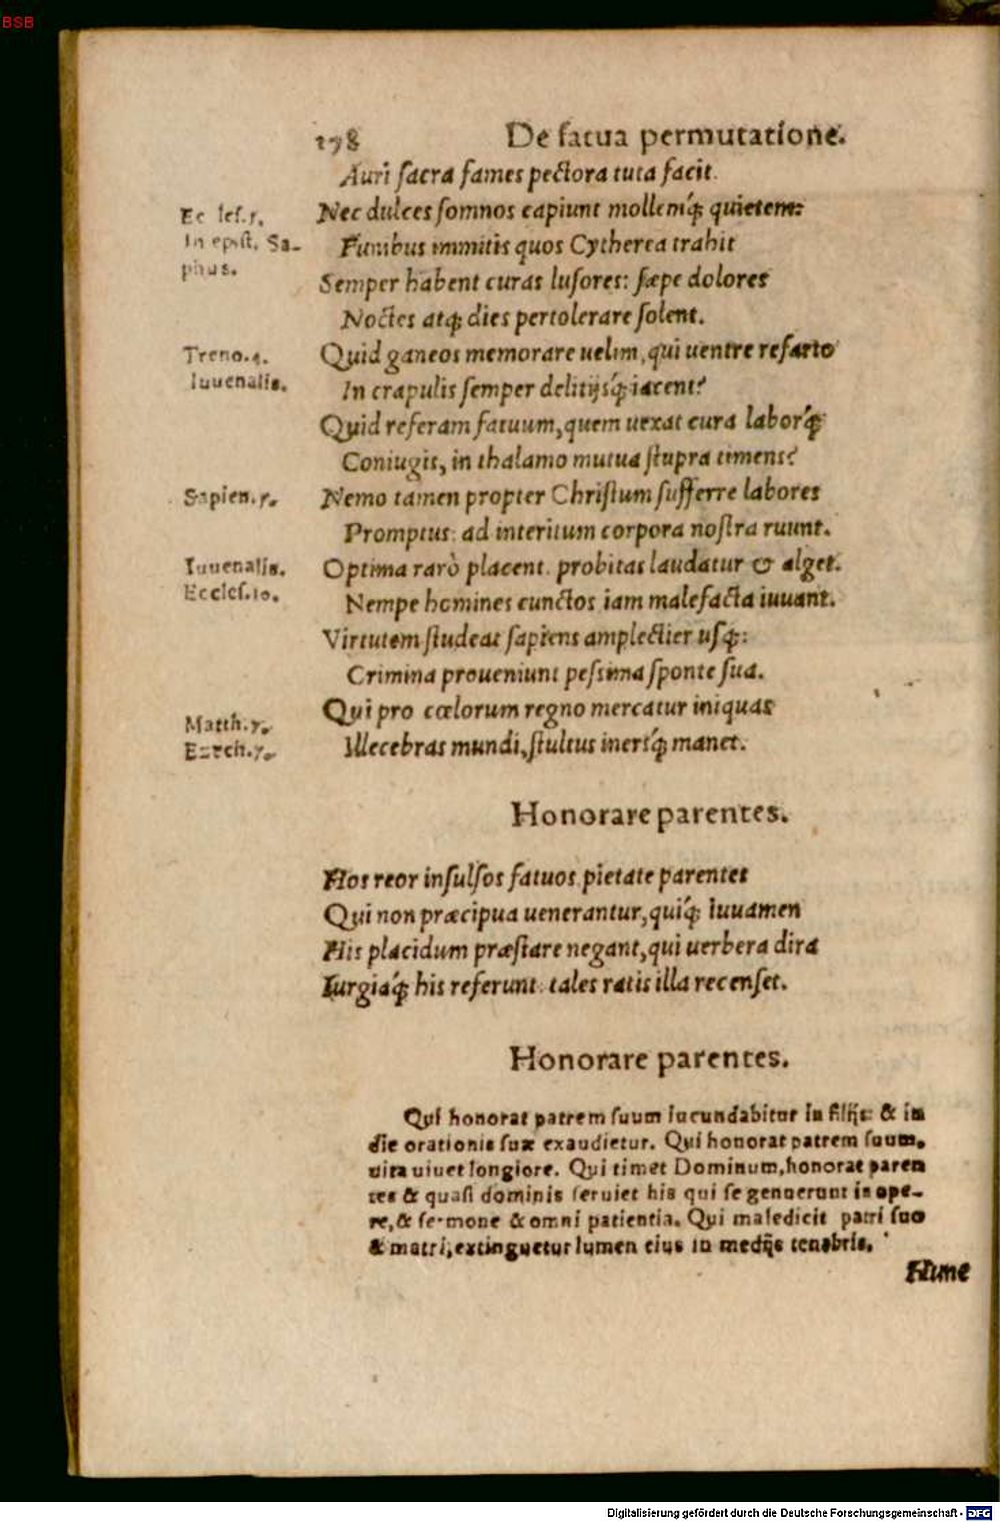 BSB
178 De fatua permutatione.
Auri sacra fames pectora tuta facit.
Ec lef.5. Nec dulces somnos capiunt mollemq́; quietem:
In epist. Sa- Funibus immitis quos Cytherea trahit
phus. Semper habent curas lusores: sæpe dolores
Noctes atq; dies pertolerare solent.
Treno.4. Quid ganeos memorare uelim, qui uentre refarto
Iuuenalis. In crapulis semper delitijsq́; iacent?
Quid referam fatuum, quem uexat cura laborq́;
Coniugis, in thalamo mutua stupra timens?
Sapien.5. Nemo tamen propter Christum sufferre labores
Promptus: ad interitum corpora nostra ruunt.
Iuuenalis. Optima rarò placent. probitas laudatur & alget.
Eccles.10. Nempe homines cunctos iam malefacta iuuant.
Virtutem studeat sapiens amplectier usq;:
Crimina proueniunt pessima sponte sua.
Matth.7. Qui pro cœlorum regno mercatur iniquas
Ezech.7. Illecebras mundi, stultus inersq́; manet.
Honorare parentes.
Hos reor insulsos fatuos. pietate parentes
Qui non præcipua uenerantur, quiq́; iuuamen
His placidum præstare negant, qui uerbera dira
Iurgiaq́; his referunt: tales ratis illa recenset.
Honorare parentes.
Qui honorat patrem suum iucundabitur in filijs: & in
die orationis suæ exaudietur. Qui honorat patrem suum,
uita uiuet longiore. Qui timet Dominum, honorat paren
tes & quasi dominis seruiet his qui se genuerunt in ope-
re, & sermone & omni patientia. Qui maledicit patri suo
& matri, extinguetur lumen eius in medijs tenebris.
Hunc
Digitalisierung gefördert durch die Deutsche Forschungsgemeinschaft - DFG